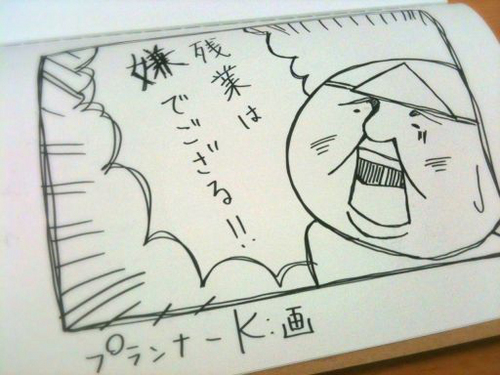 残業は
嫌でござる!!
プランナーK:画